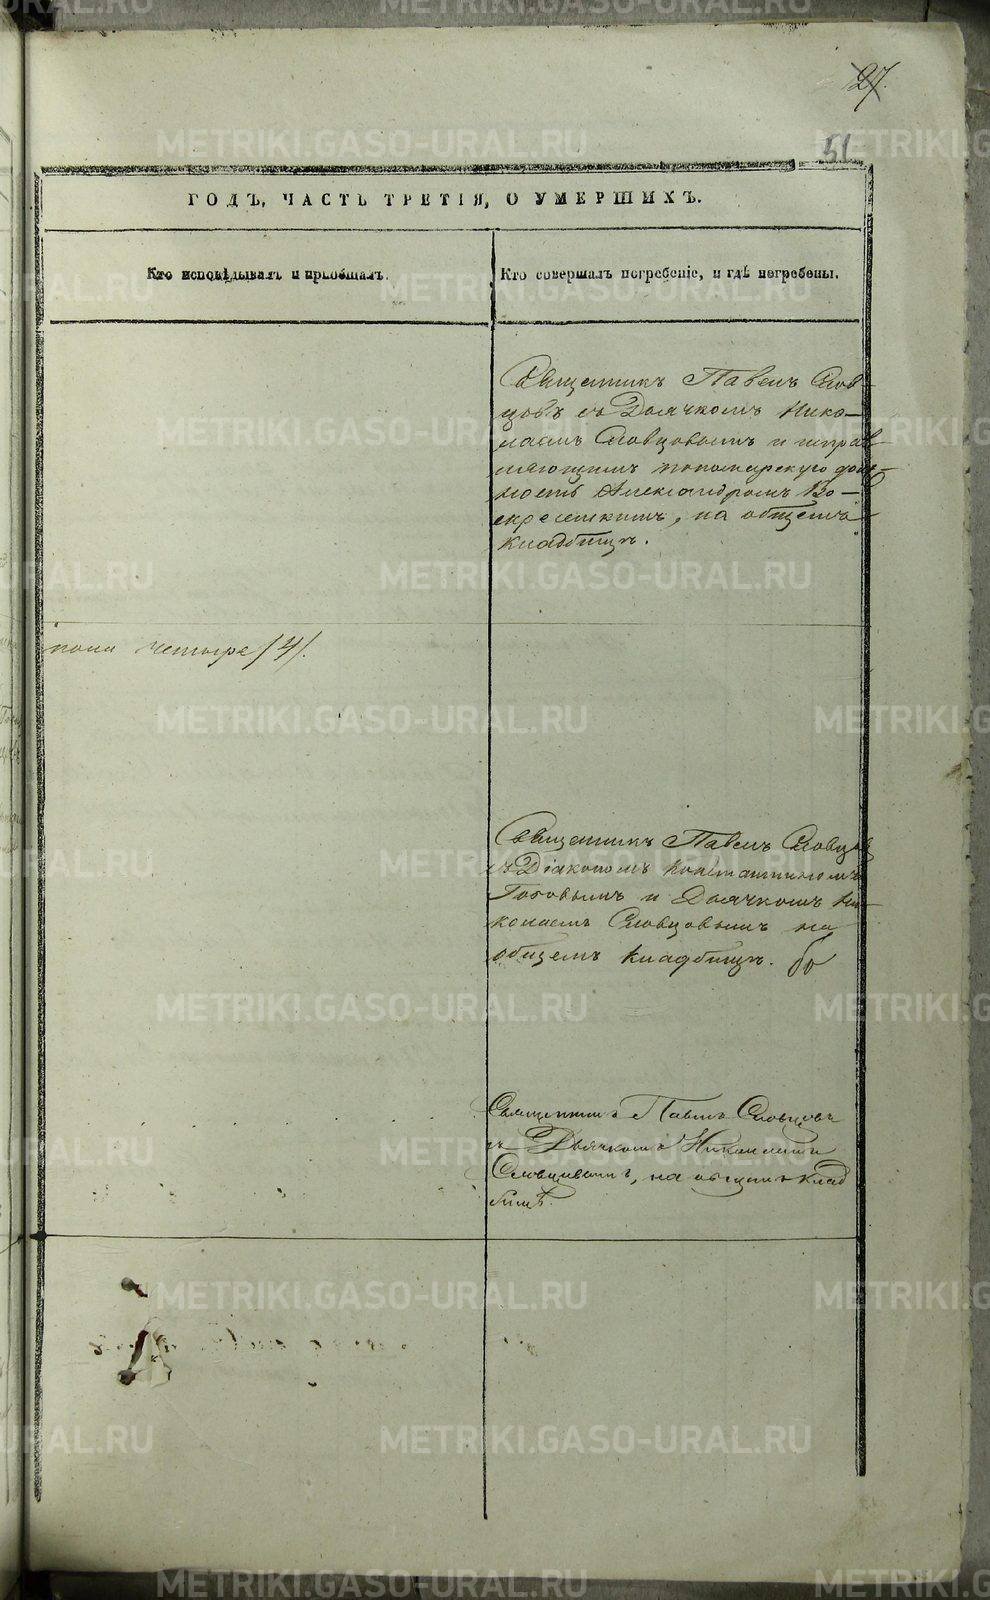 27.
51
ГОДЪ, ЧАСТЬ ТРЕТІЯ, О УМЕРШИХЪ.
Кто исповѣдывалъ и пріобщалъ.
Кто совершалъ погребеніе, и гдѣ погребены.
Священникъ Павелъ Слов-
цовъ съ Дьячкомъ Нико-
лаемъ Словцовымъ и исправ-
ляющимъ пономарскую долж-
ность Александромъ Во-
скресенскимъ, на общемъ
кладбищѣ.
пола четыре /4/.
Священникъ Павелъ Словцовъ
съ Діакономъ Константиномъ
и Дьячкомъ Ни-
колаемъ Словцовымъ на
общемъ кладбищѣ.
Священникъ Павелъ Словцовъ
съ Дьячкомъ Николаемъ
Словцовымъ, на общемъ клад
бищѣ.
METRIKI.GASO-URAL.RU